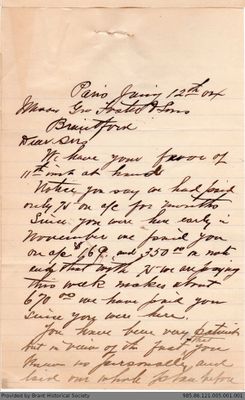 Paris Jany 12th 04
Messrs Geo Foster & Sons
Brantford
Dear Sirs
We have your favor of
11th inst at hand
Notice you say we had paid
only 75 on a/c for months
Since you were here early in
November we paid you
on a/c $ 169 and 350 00 on note
with that note 75 we are paying
this week makes about
670 00 we have paid you
Since you were here.
You have been very patient
but in view of the fact that you
knew us personally and
our whole
Provided by Brant Historical Society
985.88.121.005.001.001